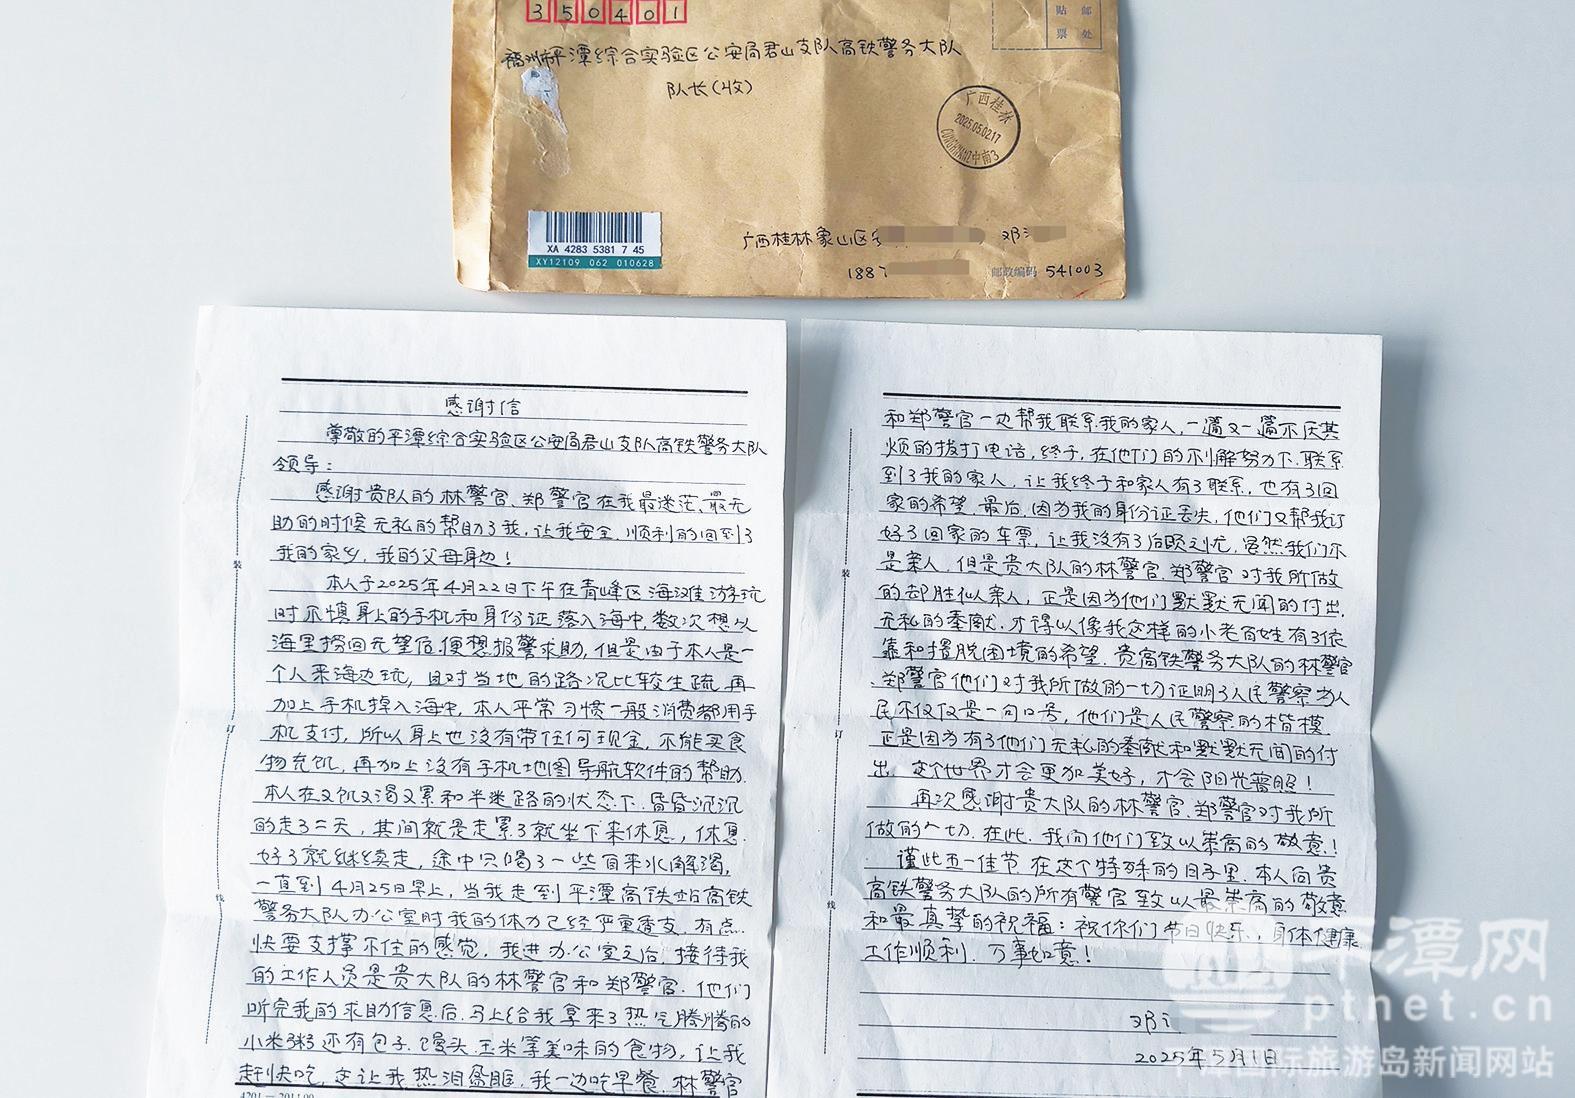 350401
贴 邮
票 处
福州市平潭综合实验区公安局君山支队高铁警务大队
队长(收)
广西桂林
2025.05.02.17
中南3
XA 4283 5381 7 45
XY12109 062 010628
广西桂林象山区 邓
1887 邮政编码 541003
感谢信
尊敬的平潭综合实验区公安局君山支队高铁警务大队
领导：
感谢贵队的林警官、郑警官在我最迷茫、最无
助的时候无私的帮助了我，让我安全、顺利的回到了
我的家乡，我的父母身边！
本人于2025年4月22日下午在青峰区海滩游玩
时不慎身上的手机和身份证落入海中，数次想从
海里捞回无望后，便想报警求助，但是由于本人是一
个人来海边玩，且对当地的路况比较生疏，再
加上手机掉入海中，本人平常习惯一般消费都用手
机支付，所以身上也没有带任何现金，不能买食
物充饥，再加上没有手机地图导航软件的帮助，
本人在又饥又渴又累和半迷路的状态下，昏昏沉沉
的走了二天，其间就是走累了就坐下来休息，休息
好了就继续走，途中只喝了一些自来水解渴，
一直到4月25日早上，当我走到平潭高铁站高铁
警务大队办公室时我的体力已经严重透支，有点
快要支撑不住的感觉，我进办公室之后，接待我
的工作人员是贵大队的林警官和郑警官，他们
听完我的求助信息后，马上给我拿来了热气腾腾的
小米粥还有包子、馒头、玉米等美味的食物，让我
赶快吃，这让我热泪盈眶，我一边吃早餐，林警官
装
订
线
和郑警官一边帮我联系我的家人，一遍又一遍不厌其
烦的拨打电话，终于，在他们的不懈努力下，联系
到了我的家人，让我终于和家人有了联系，也有了回
家的希望，最后，因为我的身份证丢失，他们又帮我订
好了回家的车票，让我没有了后顾之忧，虽然我们不
是亲人，但是贵大队的林警官、郑警官对我所做
的却胜似亲人，正是因为他们默默无闻的付出，
无私的奉献，才得以像我这样的小老百姓有了依
靠和摆脱困境的希望，贵高铁警务大队的林警官
、郑警官他们对我所做的一切证明了人民警察为人
民不仅仅是一句口号，他们是人民警察的楷模
正是因为有了他们无私的奉献和默默无闻的付
出，这个世界才会更加美好，才会阳光普照！
再次感谢贵大队的林警官、郑警官对我所
做的一切，在此，我向他们致以崇高的敬意！
谨此五一佳节，在这个特殊的日子里，本人向贵
高铁警务大队的所有警官致以最崇高的敬意
和最真挚的祝福：祝你们节日快乐，身体健康，
工作顺利，万事如意！
邓
2025年5月1日
装
订
线
平潭网
ptnet.cn
平潭国际旅游岛新闻网站